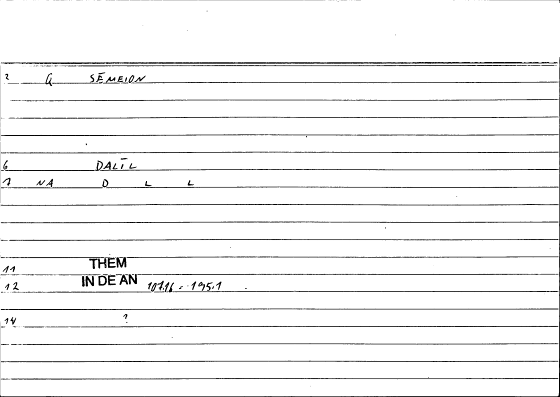 2 G SĒMEION
6 DALĪL
7 NA D L L
11 THEM
12 IN DE AN 107.16 - 195.1
14 ?